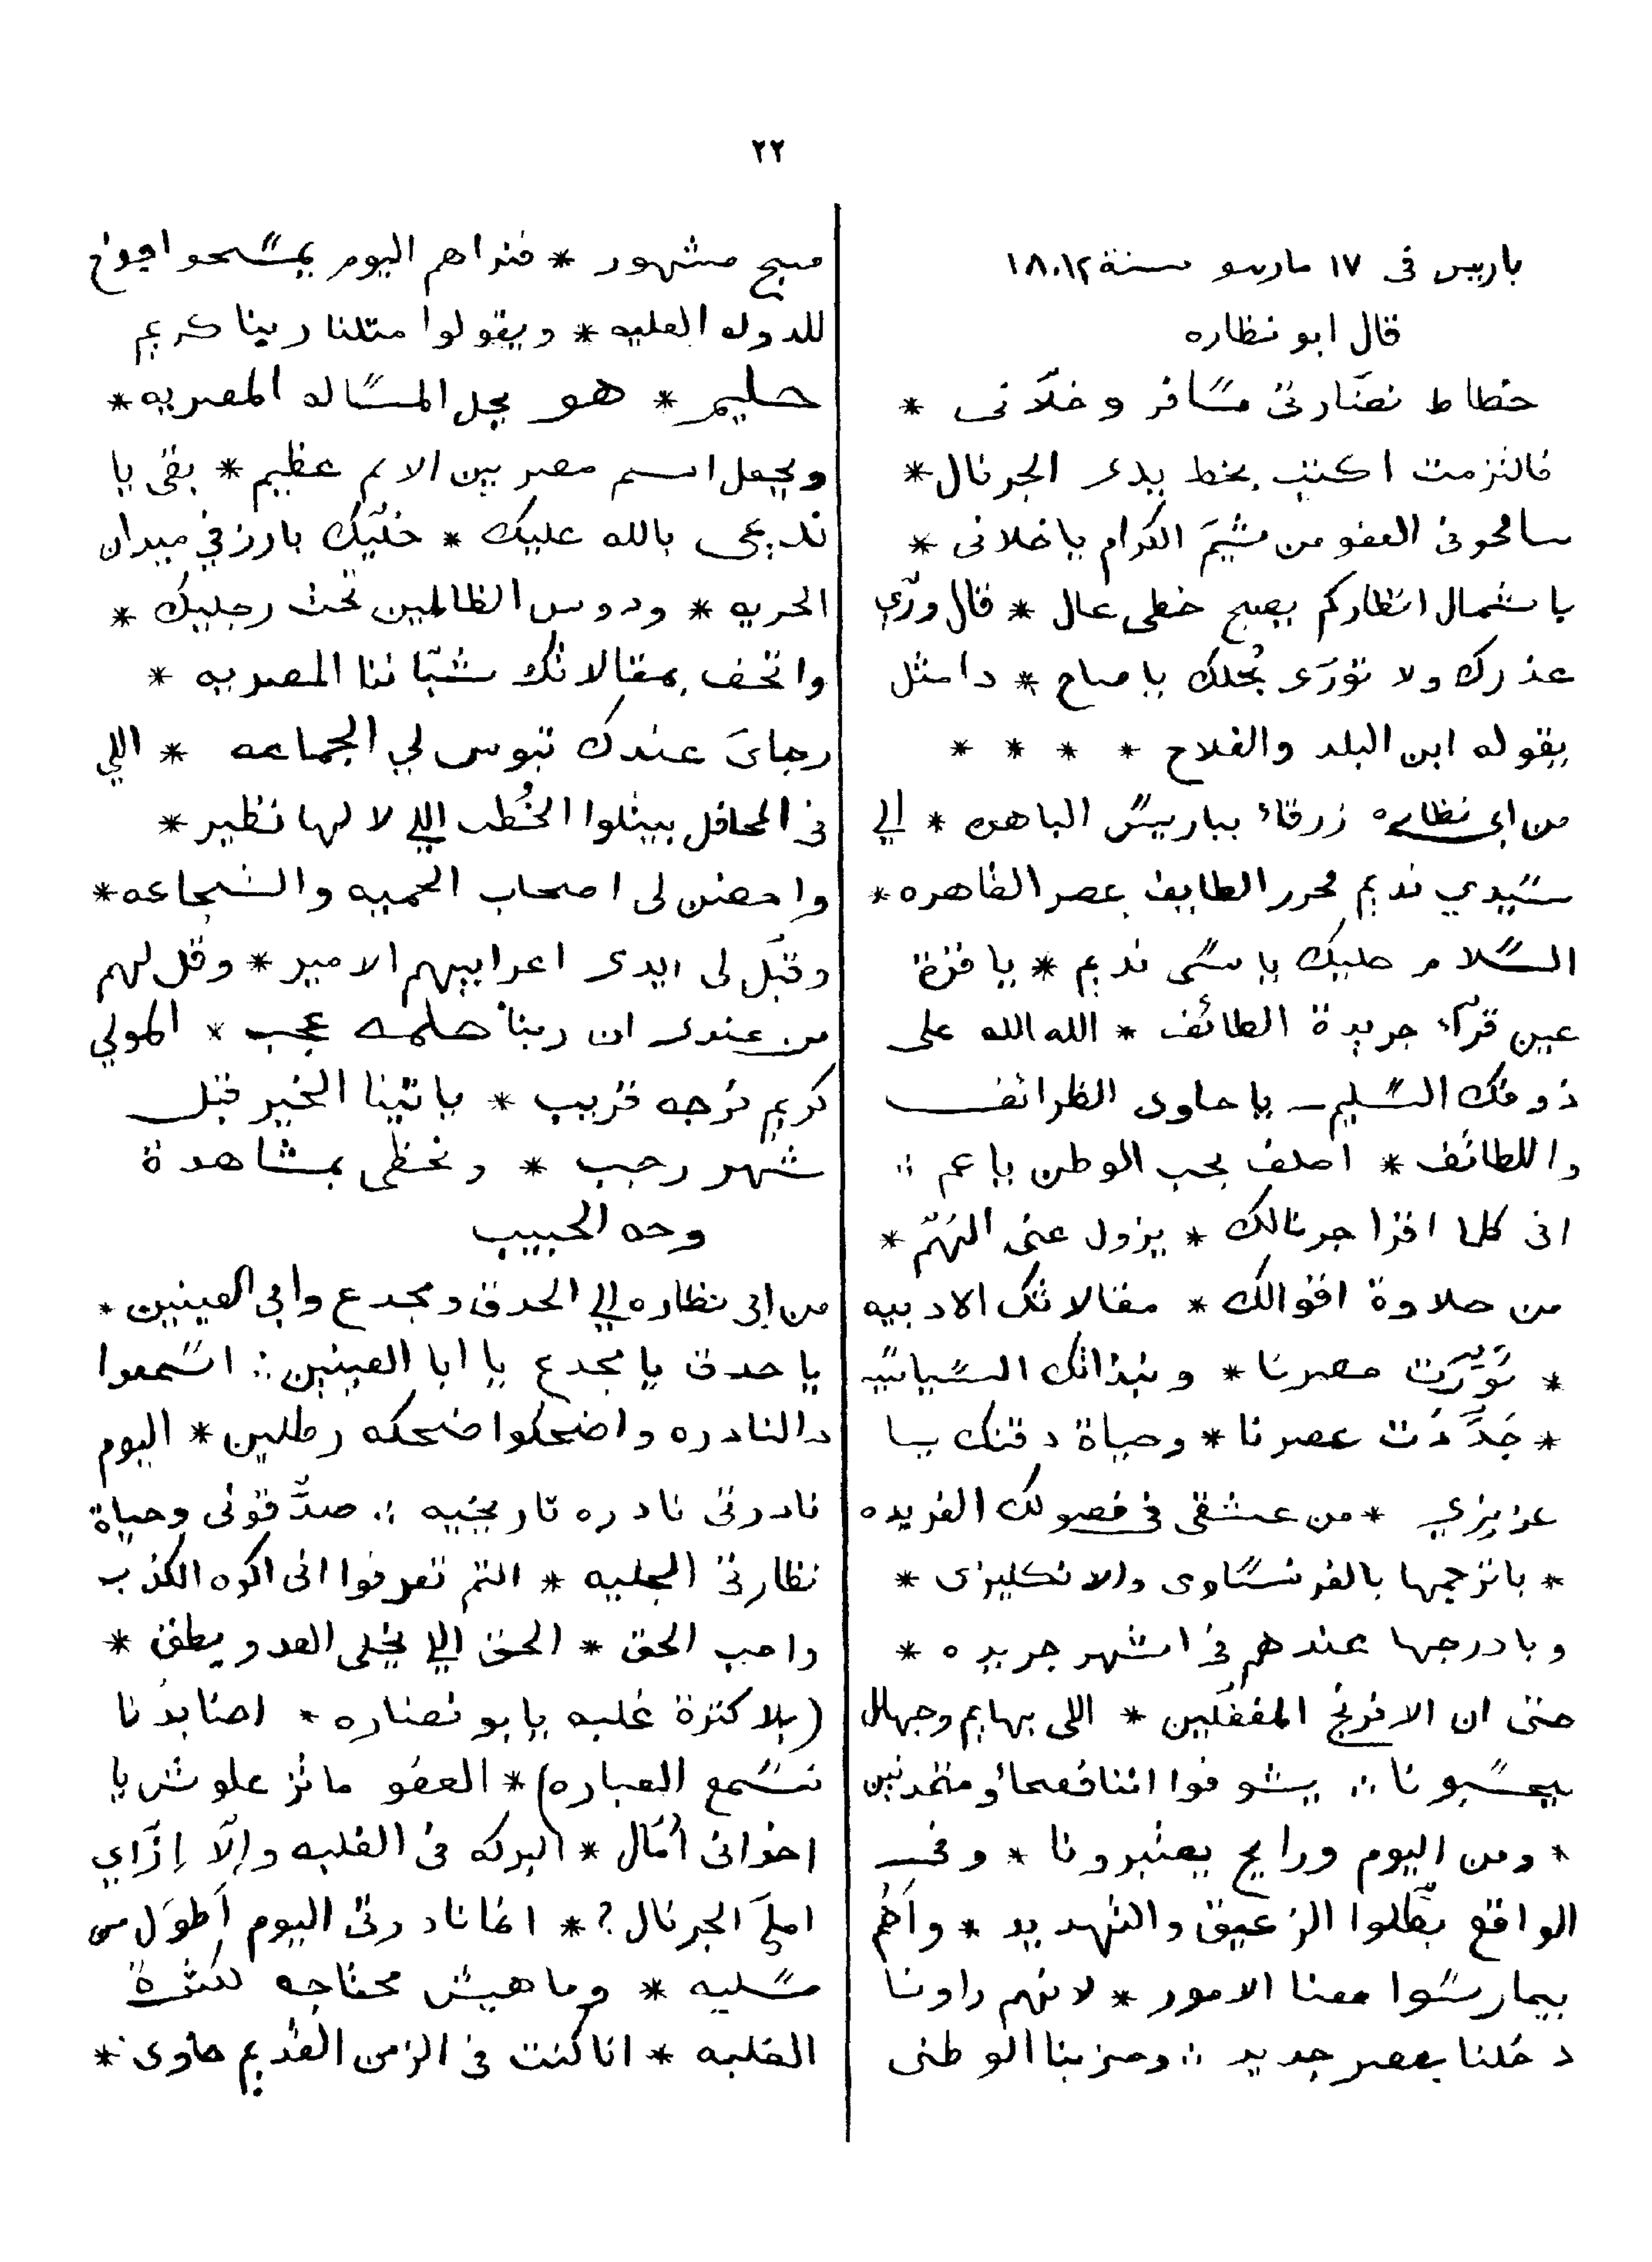 ٢٢
باريس فى ١٧ مارسو سنة ١٨٨٢
قال ابو نظاره
خطاط نضّارتى مسافر وخلّانى *
فالتزمت اكتب بخط يدى الجرنال *
سامحونى العفو من شيَم الكرام ياخلانى *
باشمال انظاركم يصبح خطى عال * قال ورّي
عذرك ولا تورّى بُخلك ياصاح * دا مثل
يقوله ابن البلد والفلاح * * * *
من ابى نظاره زرقاء بباريس الباهره * الي
سيدي نديم محرر الطايف بمصر القاهره *
السلام عليك ياسى نديم * ياقرة
عين قرآء جريدة الطائف * الله الله على
ذوقك السليم يا حاوى الظرائف
واللطائف * احلف بحب الوطن ياعم ∴
انى كلما اقرا جرنالك * يزول عنى الهَمّ *
من حلاوة اقوالك * مقالاتك الادبيه
* نَوَّرَت مصرنا * ونبذاتك السياسيّه
* جَدَّدَت عصرنا * وحياة دقنك يا
عزيزي * من عشقى فى فصولك الفريده
* باترجمها بالفرنساوى والانكليزى *
وبادرجها عندهم فى اشهر جريده *
حتى ان الافرنج المغفّلين * اللى بهايم وجهال
يحسبونا ∴ يشوفوا اننا فصحاء ومتمدنين
* ومن اليوم ورايح يعتبرونا * وفى
الواقع بطّلوا الزعيق والتهديد * واَهُم
بيمارسوا معنا الامور * لانهم راونا
دخلنا بعصر جديد ∴ وحزبنا الوطنى
صبح مشهور * فنراهم اليوم يمسحوا جوخ
للدوله العليه * ويقولوا متلنا ربنا كريم
حليم * هو يحل المساله المصريه *
ويجعل اسم مصر بين الامم عظيم * بقى يا
نديمى بالله عليك * خليّك بارز في ميدان
الحريه * ودوس الظالمين تحت رجليك *
واتحف بمقالاتك شبّاننا المصريه *
رجاىَ عندك تبوس لي الجماعه * اللي
فى المحافل بيتلوا الخُطب اللي لا لها نظير *
واحضن لى اصحاب الحميه والشجاعه *
وقبّل لى ايدى اعرابيهم الامير * وقُل لهم
من عندى ان ربنا حلمه عجب * المولي
كريم فرجه قريب * ياتينا الخير قبل
شهر رجب * ونحظى بمشاهدة
وجه الحبيب
من ابى نظاره الي الحدق ومجدع وابى العينين *
يا حدق يا مجدع يا ابا العينين ∴ اسمعوا
دالنادره واضحكوا ضحكه رطلين * اليوم
نادرتى نادره تاريخيه ∴ صدَّقونى وحياة
نظارتى الجليه * انتم تعرفوا انى اكره الكذب
واحب الحق * الحق اللي يخلى العدو يطق *
(بلا كترة غلبه يابو نضاره * احنا بدنا
نسمع العباره) * العفو ماتزعلوش يا
اخوانى اُمّال * البركه فى الغلبه وإلّا اِزّاي
املَى الجرنال؟ * انما نادرتى اليوم اَطوَل من
مسليه * وماهيش محتاجه لكترة
الغلبه * انا كنت فى الزمن القديم حاوى *